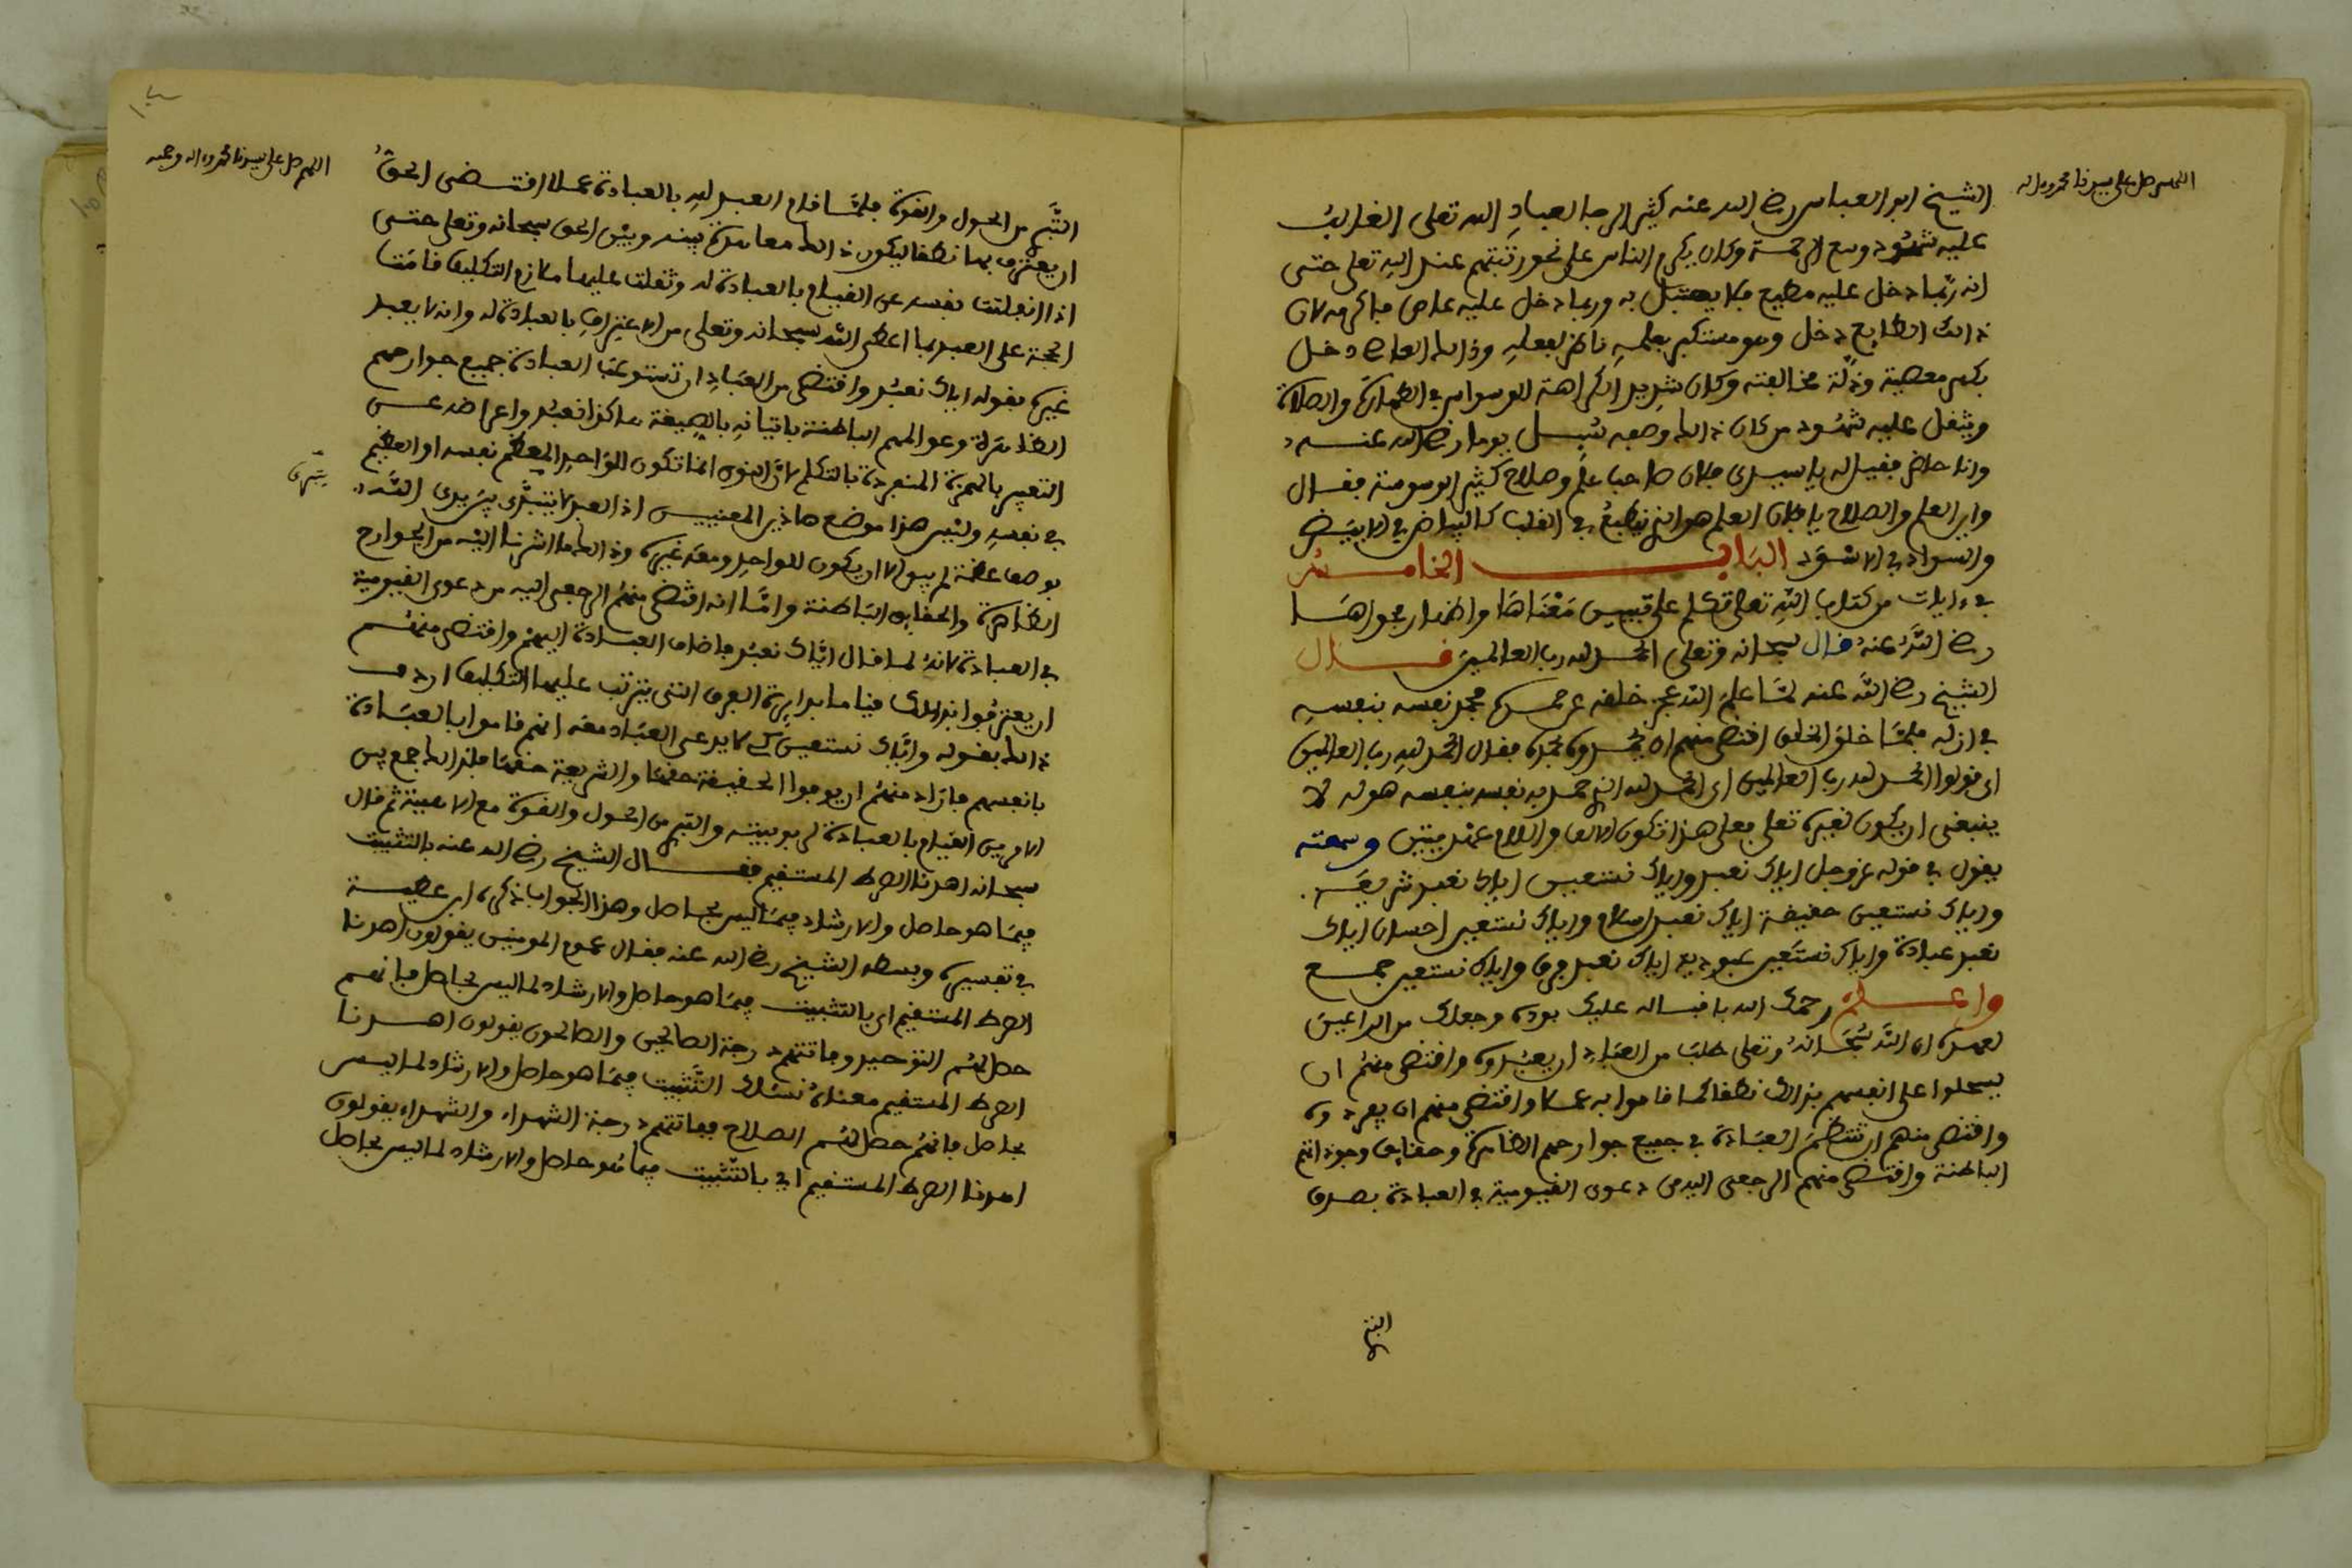 اللهم صل على سيدنا محمد وءاله
الشيخ ابو العباس رضي الله عنه كثير الرجا لعباد الله تعلى الغالب
عليه شهود وسع الرحمة وكان يكرم الناس على نحو رتبتهم عند الله تعلى حتى
انه ربما دخل عليه مطيع فلا يهتبل به وربما دخل عليه عاص فاكرمه لان
ذالك الطايع دخل وهو متكبر بعلمه ناظر لفعله وذالك العاصي دخل
بكسر معصية وذلة مخالفته وكان شديد الكراهة للوسواس في الطهارة والصلاة
ويثقل عليه شهود من كان ذالك وصفه سيل يوما رضي الله عنه
وانا حاضر فقيل له يا سيدي فلان صاحب علم وصلاح كثير الوسوسة فقال
واين العلم والصلاح يا فلان العلم هو الذي ينطبع في القلب كالبياض في الابيض
والسواد في الاسود الباب الخامس
في ءايات من كتاب الله تعلى تكلم على تبيين معناها واظهار فحواها
رضي الله عنه قال سبحانه وتعلى الحمد لله رب العالمين قال
الشيخ رضي الله عنه لما علم الله عجز خلقه عن حمده حمد نفسه بنفسه
في ازله فلما خلق الخلق اقتضى منهم ان يحمدوه بحمده فقال الحمد لله رب العالمين
اي قولوا الحمد لله رب العالمين اي الحمد لله الذي حمد به نفسه بنفسه هو له لا
ينبغي ان يكون لغيره تعلى فعلى هذا تكون الالف واللام عهديتين وسمعته
يقول في قوله عز وجل اياك نعبد واياك نستعين اياك نعبد شريعة
واياك نستعين حقيقة اياك نعبد اسلام واياك نستعين احسان اياك
نعبد عبادة واياك نستعين عبودية اياك نعبد فرق واياك نستعين جمع
واعلم رحمك الله باقباله عليك بوده وجعلك من الراعين
لعهده ان الله سبحانه وتعلى طلب من العباد ان يعبدوه واقتضى منهم ان
يسجلوا على انفسهم بذالك نطقا كما قاموا به عملا واقتضى منهم ان يفردوه
واقتضى منهم ان تنتظم العبادة في جميع جوارحهم الظاهرة وحقايق وجوداتهم
الباطنة واقتضى منهم الرجعى اليه من دعوى القيومية في العبادة بصدق
التبري
اللهم صل على سيدنا محمد وءاله وصحبه
التبري من الحول والقوة فلما قام العبد لله بالعبادة عملا اقتضى الحق
ان يعترف بها نطقا ليكون ذالك معاهدة بينه وبين الحق سبحانه وتعلى حتى
اذا انفلتت نفسه عن القيام بالعبادة له وثقلت عليها ملازم التكليف قامت
الحجة على العبد بما اعطى الله سبحانه وتعلى من الاعتراف بالعبادة له وانه لا يعبد
غيره بقوله اياك نعبد واقتضى من العباد ان تستوعب العبادة جميع جوارحهم
الظاهرة وعوالمهم الباطنة باتيانه بالصيغة هاكذا نعبد واعراضه عن
التعبير بالهمزة المنفردة بالتكلم لان النون انما تكون للواحد المعظم نفسه او العظيم
في نفسه وليس هذا موضع هاذين المعنيين اذ العبد لا يتبدى بين يدي الله
بوصف عظمة لم يبق الا ان يكون للواحد ومعه غيره وذالك ما اشرنا اليه من الجوارح
الظاهرة والحقايق الباطنة واما انه اقتضى منهم الرجعى اليه من دعوى القيومية
في العبادة لانه لما قال اياك نعبد فاضاف العبادة اليهم واقتضى منهم
ان يعترفوا بذالك قياما بدايرة الفرق التي يترتب عليها التكليف اردف
ذالك بقوله واياك نستعين كي لا يدعي العباد معه انهم قاموا بالعبادة
بانفسهم فاراد منهم ان يوفوا الحقيقة حقها والشريعة حقها فلذالك جمع بين
الامرين القيام بالعبادة لربوبيته والتبري من الحول والقوة مع الاهيته ثم قال
سبحانه اهدنا الصراط المستقيم فقال الشيخ رضي الله عنه بالتثبيت
فيما هو حاصل والارشاد فيما ليس بحاصل وهذا الجواب ذكره ابن عطية
في تفسيره وبسطه الشيخ رضي الله عنه فقال عموم المومنين يقولون اهدنا
الصراط المستقيم اي بالتثبيت فيما هو حاصل والارشاد لما ليس بحاصل فانهم
حصل لهم التوحيد وفاتتهم درجة الصالحين والصالحون يقولون اهدنا
الصراط المستقيم معناه نسئلك التثبيت فيما هو حاصل والارشاد لما ليس
بحاصل فانهم حصل لهم الصلاح ففاتتهم درجة الشهداء والشهداء يقولون
اهدنا الصراط المستقيم اي بالتثبيت فيما هو حاصل والارشاد لما ليس بحاصل